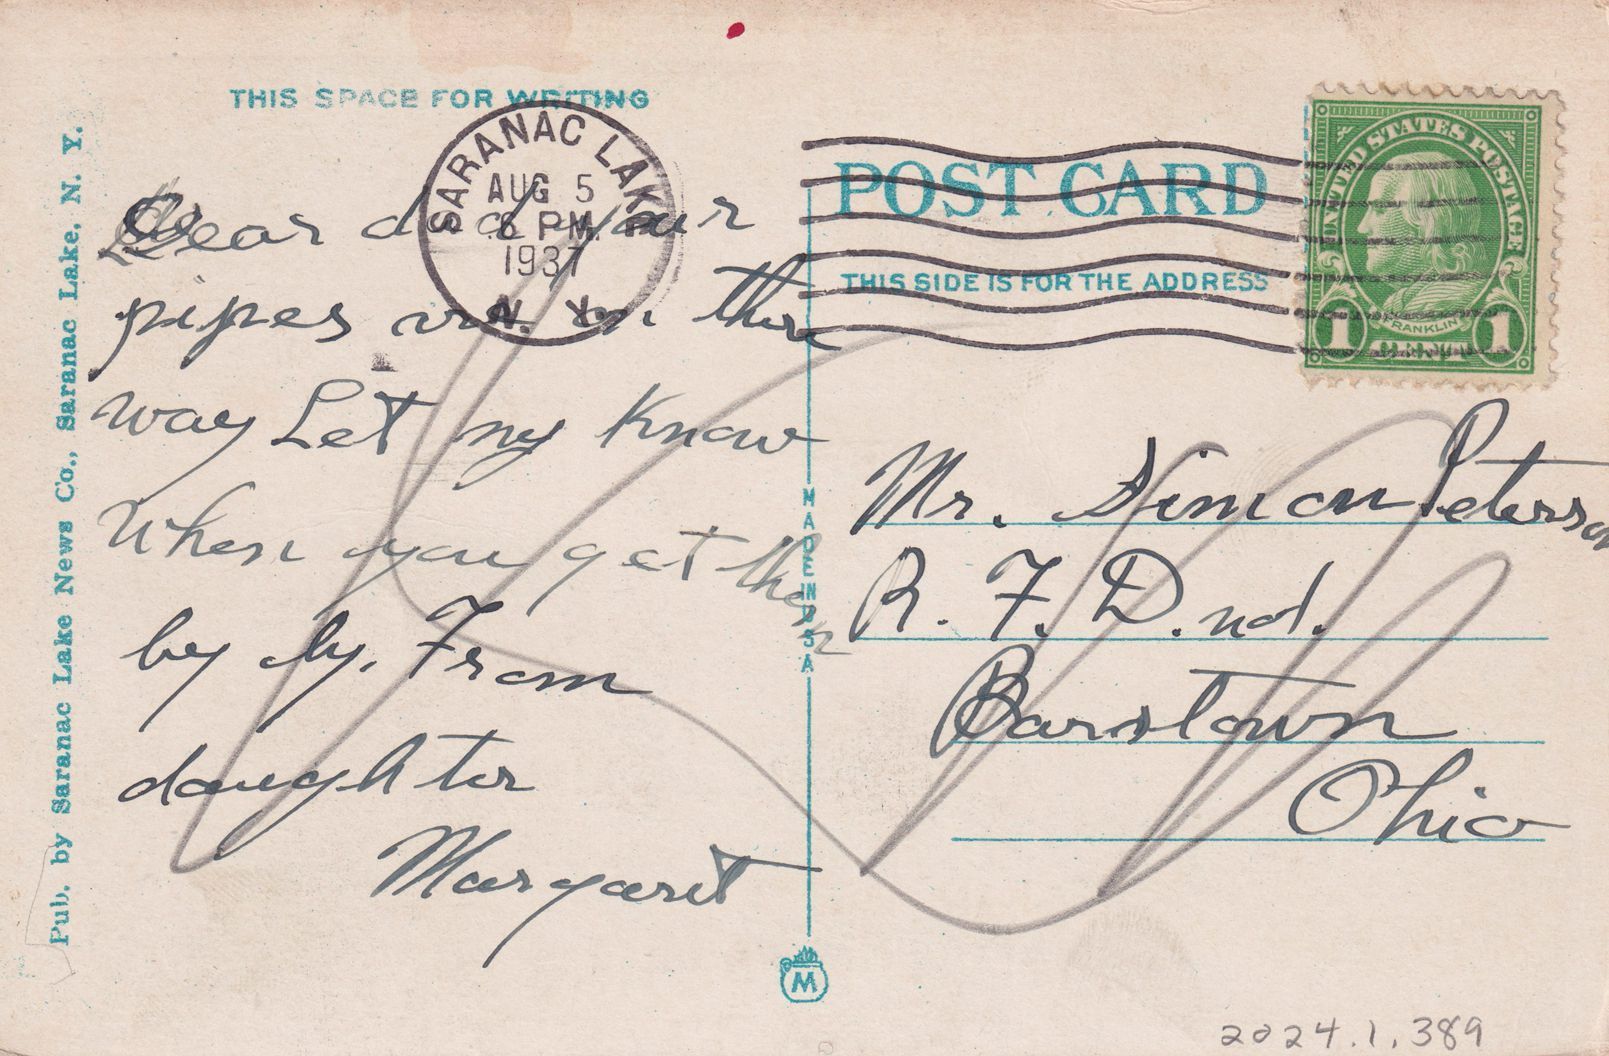 THIS SPACE FOR WRITING
SARANAC LAKE
AUG 5
6 PM
1937
N. Y.
Dear dad your
pipes are on there
way Let my know
When you get them
by by. From
daughter
Margaret
Pub. by Saranac Lake News Co., Saranac Lake, N. Y.
MADE IN USA
M
POST CARD
THIS SIDE IS FOR THE ADDRESS
UNITED STATES POSTAGE
FRANKLIN
1 CENT 1
Mr. Simon Peterson
R. F. D. no1.
Barstown
Ohio
2024.1.389